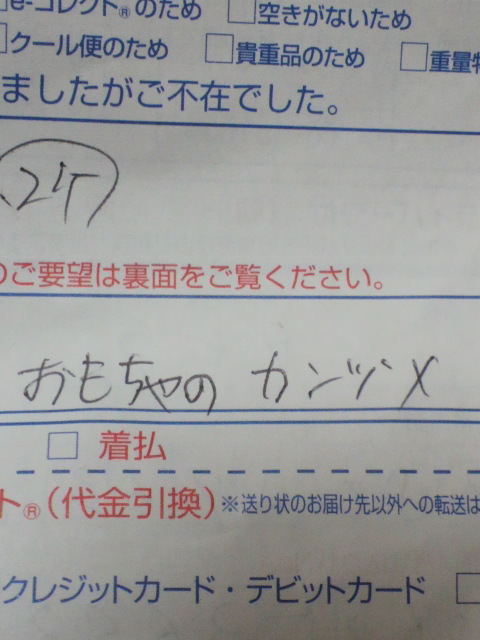 e-コレクト®のため □空きがないため
□クール便のため □貴重品のため □重量
ましたがご不在でした。
2ケ
のご要望は裏面をご覧ください。
おもちゃの カンヅメ
□ 着払
ト®(代金引換)※送り状のお届け先以外への転送は
クレジットカード・デビットカード □